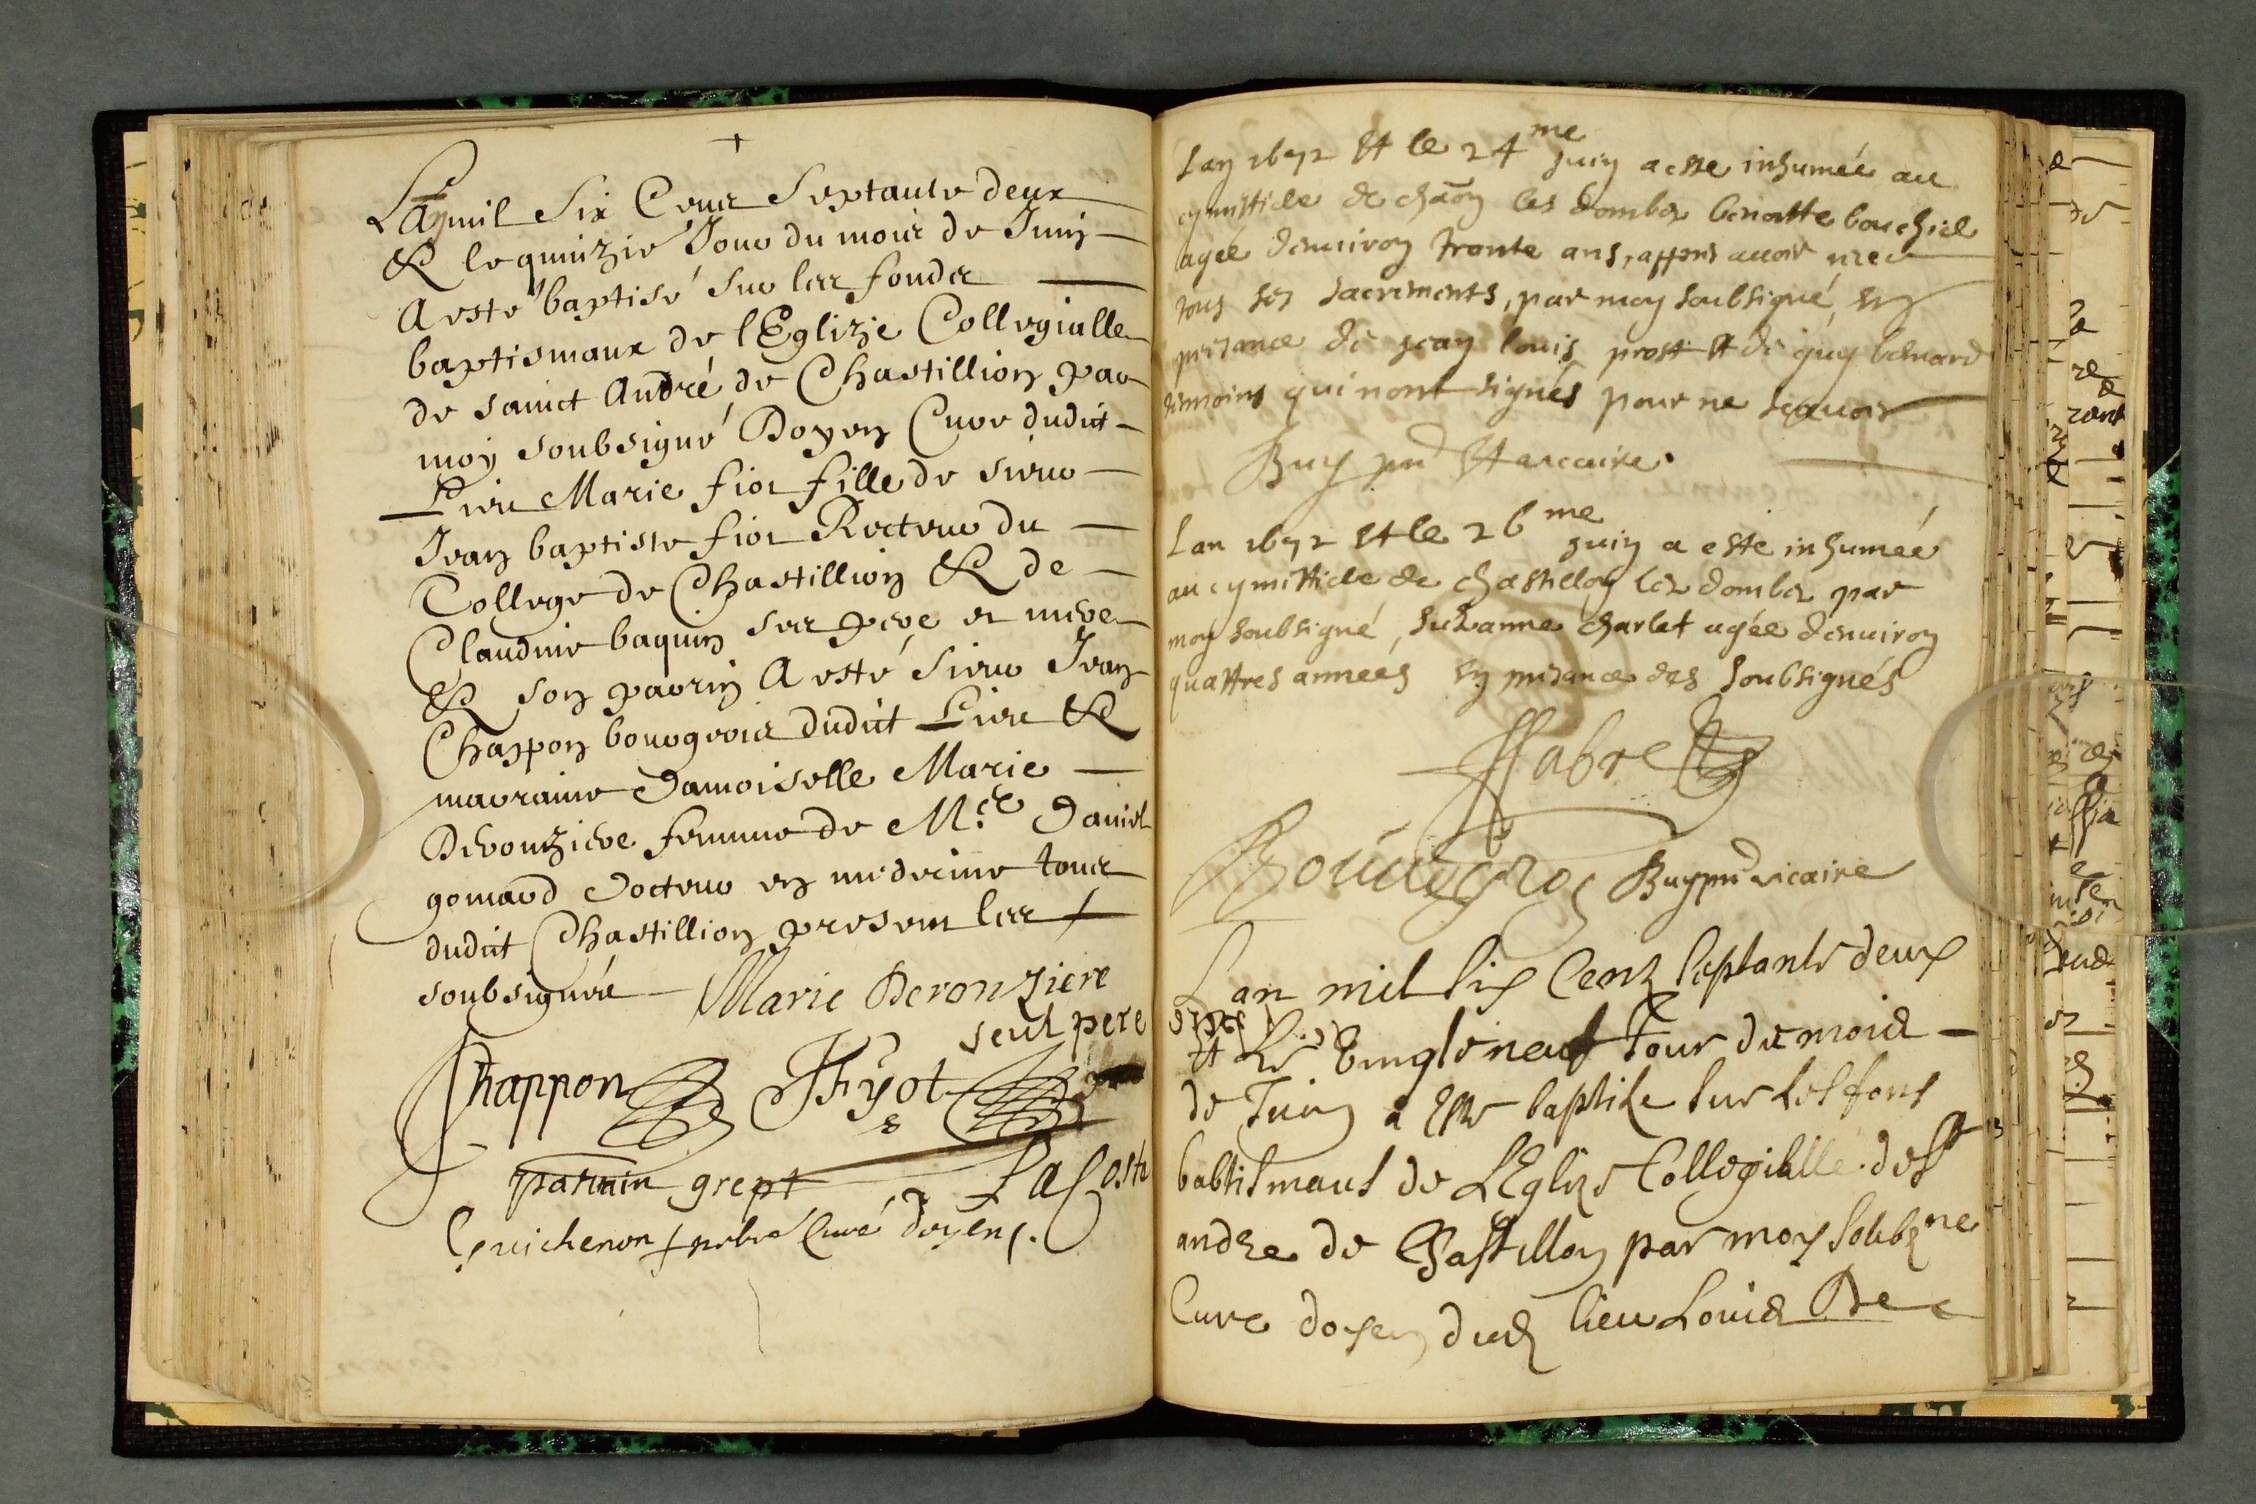 L'an mil Six Cens Septante deux
& le quinzie Jour du mois de Juin
A esté baptisé sur les fondes
baptismaux de l'Eglizie Collegialle
de sainct André de Chastillion par
moy soubsigné Doyen Curé dudict
Lieu Marie fiot fille de sieur
Jean baptiste fiot Recteur du
College de Chastillion & de
Claudine baquin ses pere et mere
& son parrin A esté sieur Jean
Chappon bourgeois dudict Lieu &
marraine Damoiselle Marie
Derouziere femme de Mre Daniel
gomard docteur en medecine tous
dudict Chastillion present les
soubsignés Marie Derouziere
seul pere
Chappon JFyot
parrain grept LaCoste
Guichenon prbre curé doyen.
Lan 1672 et le 24me juin a este inhumée au
cymittiele de chaon les dombes benoitte bouchiel
agée denuiron trente ans, appres auoir receu
tous ses sacrements, par moy soubsigné, en
presance de jean louis prost et de guy benard
temoins qui nont signés pour ne scauoir
Buy pnd et arcaire.
Lan 1672 et le 26me juin a esté inhumée
au cymittiele de chastillon les dombes par
moy soubsigné, suzanne charlet agée denuiron
quattres années en presance des soubsignés
Fabre
Bourgeois Buy pnd vicaire
Lan mil six Cens septante deux
et Le Vingt neuf Jour du mois
de Juin a esté baptize sur les fons
babtismaus de L'Eglize Collegialle de St
andre de Chastillon par moy soubzne
Cure doyen dud lieu Louis De